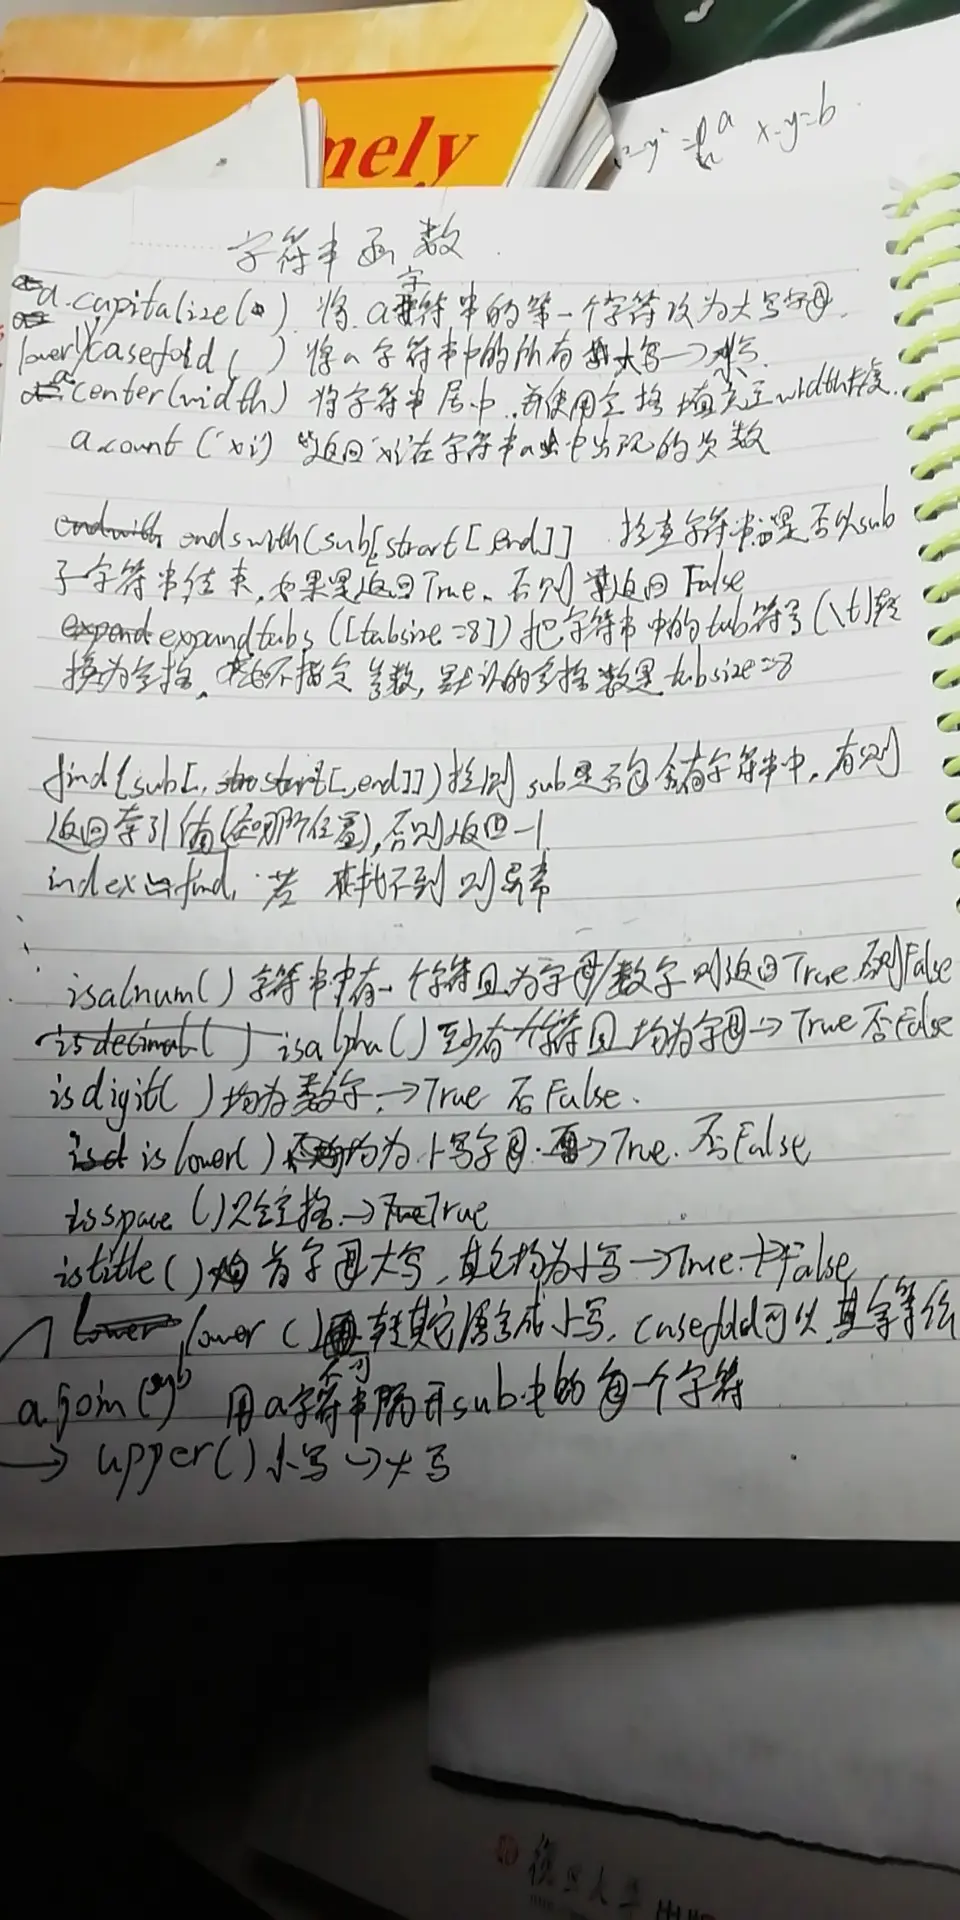 mely
x-y=b
字符串函数
a.capitalize( ) 将a字符串的第一个字符改为大写字母.
lower/casefold ( ) 将a字符串中的所有大写→小写.
a.center(width) 将字符串居中,并使用空格填充至width长度.
a.count('xi') 返回'xi'在字符串a中出现的次数
endswith(sub[,start[,end]] 检查字符串是否以sub
子字符串结束,如果是返回True、否则返回False
expandtabs ([tabsize=8])把字符串中的tab符号(\t)转
换为空格,不指定参数,默认的空格数是tabsize=8
find(sub[,start[,end]])检测sub是否包含在字符串中,有则
返回索引值(在哪个位置),否则返回-1
index find, 若找不到则异常
isalnum()字符串中有一个字符且为字母/数字则返回True否则False
isdecimal() isalpha()至少有一个字符且均为字母→True否False
isdigit()均为数字→True 否False.
islower()均为小写字母→True.否False
isspace()只含空格→True
istitle()首字母大写,其它均为小写→True.False
lower()其它语言成小写.casefold可以
a.join(sub) 用a字符串隔开sub中的每一个字符
→ upper()小写→大写
復旦大學出版